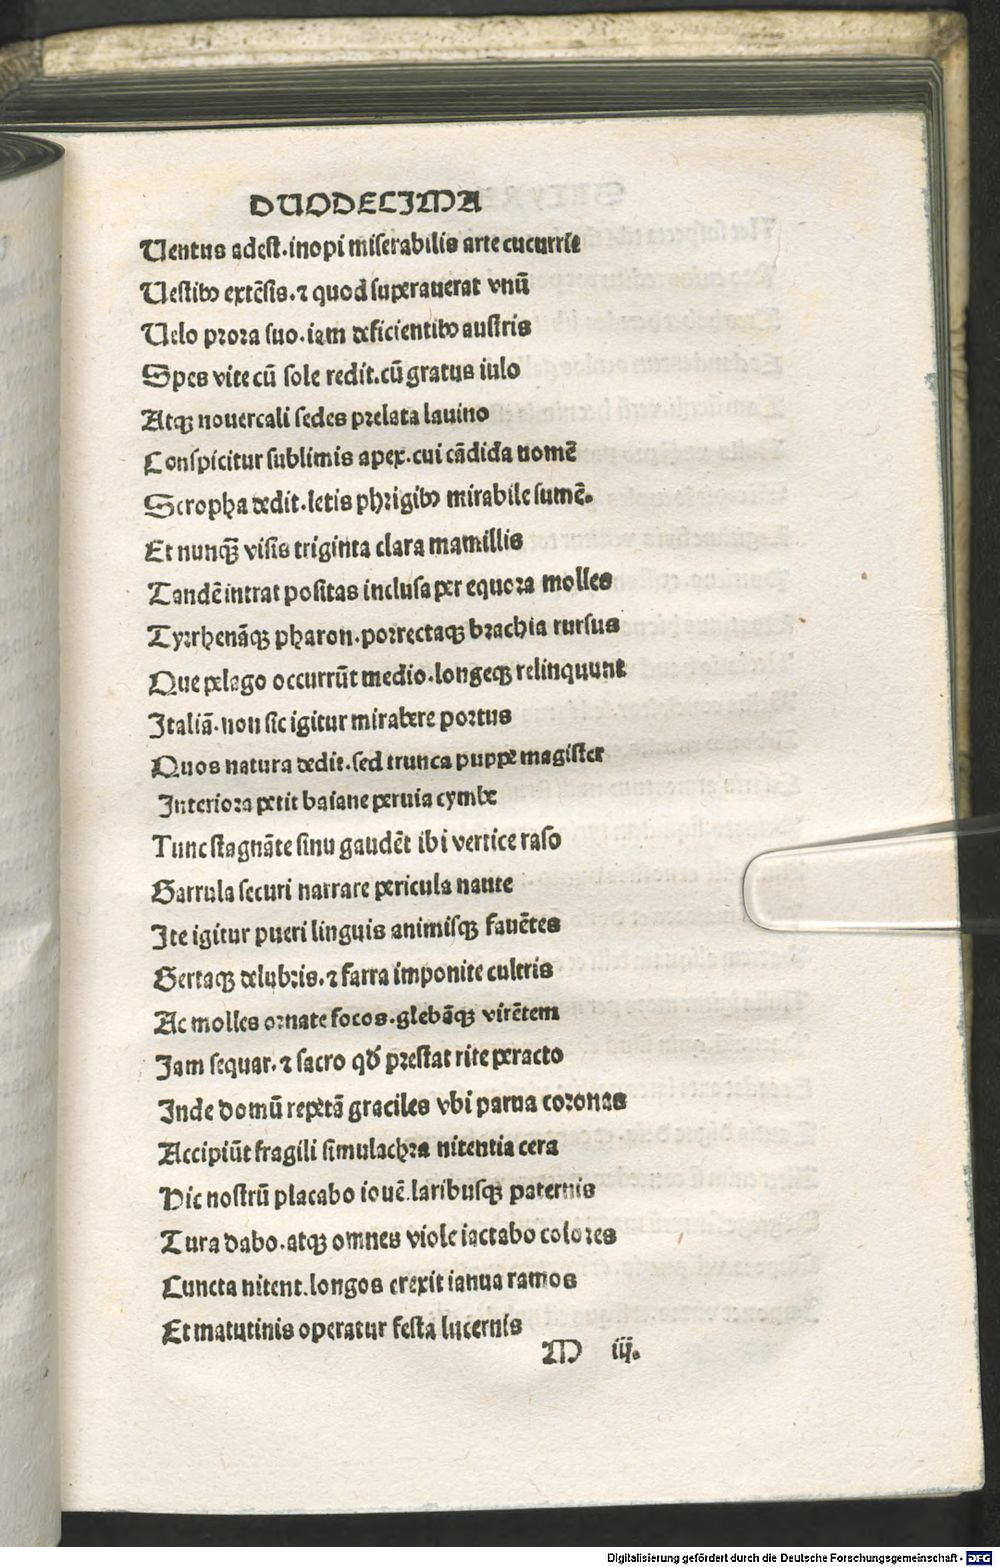 DUODECIMA
Uentus adest.inopi miserabilis arte cucurrit
Uestibꝰ extẽsis.⁊ quod superauerat vnũ
Uelo prora suo.iam deficientibꝰ austris
Spes vite cũ sole redit.cũ gratus iulo
Atqꝫ nouercali sedes prelata lauino
Conspicitur sublimis apex.cui cãdida nomẽ
Scropha dedit.letis phrigibꝰ mirabile sumẽ.
Et nunqꝫ̃ visis triginta clara mamillis
Tandẽ intrat positas inclusa per equora molles
Tyrrhenãqꝫ pharon.porrectaqꝫ brachia rursus
Que pelago occurrũt medio.longeqꝫ relinquunt
Italiã.non sic igitur mirabere portus
Quos natura dedit.sed trunca puppe magister
Interiora petit baiane peruia cymbe
Tunc stagnãte sinu gaudẽt ibi vertice raso
Garrula securi narrare pericula naute
Ite igitur pueri linguis animisqꝫ fauẽtes
Sertaqꝫ delubris.⁊ farra imponite cultris
Ac molles ornate focos.glebãqꝫ virẽtem
Iam sequar.⁊ sacro qđ prestat rite peracto
Inde domũ repetã graciles vbi parua coronas
Accipiũt fragili simulachra nitentia cera
Hic nostrũ placabo iouẽ.laribusqꝫ paternis
Tura dabo.atqꝫ omnes viole iactabo colores
Cuncta nitent.longos erexit ianua ramos
Et matutinis operatur festa lucernis
M iij.
Digitalisierung gefördert durch die Deutsche Forschungsgemeinschaft - DFG